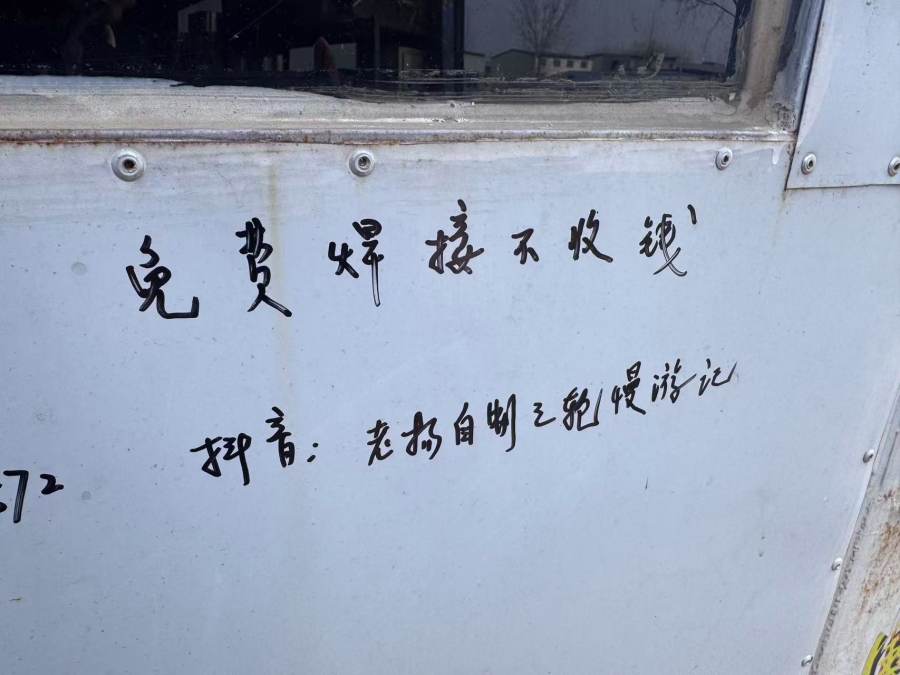 免费焊接不收钱
抖音：老杨自制三轮慢游记
72